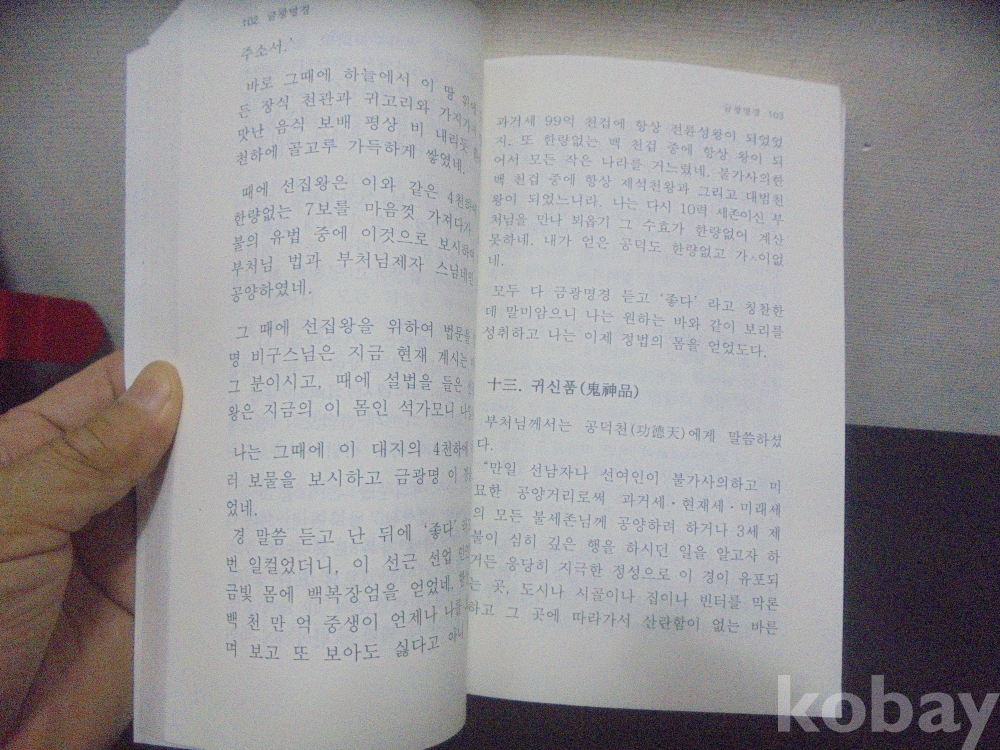 102 금광명경
주소서.
바로 그때에 하늘에서 이 땅 위에
든 장식 천관과 귀고리와 가지가
맛난 음식 보배 평상 비 내리듯
천하에 골고루 가득하게 쌓였네.
때에 선집왕은 이와 같은 4천하에
한량없는 7보를 마음껏 가져다가
불의 유법 중에 이것으로 보시하
부처님 법과 부처님제자 스님네
공양하였네.
그 때에 선집왕을 위하여 법문을
명 비구스님은 지금 현재 계시는
그 분이시고, 때에 설법을 들은
왕은 지금의 이 몸인 석가모니
나는 그때에 이 대지의 4천하에
러 보물을 보시하고 금광명 이
었네.
경 말씀 듣고 난 뒤에 ‘좋다’
번 일컬었더니, 이 선근 선업
금빛 몸에 백복장엄을 얻었네.
백 천 만 억 중생이 언제나 나를
며 보고 또 보아도 싫다고 아니
금광명경 103
과거세 99억 천겁에 항상 전륜성왕이 되었었
지. 또 한량없는 백 천겁 중에 항상 왕이 되
어서 모든 작은 나라를 거느렸네. 불가사의한
백 천겁 중에 항상 제석천왕과 그리고 대범천
왕이 되었느니라. 나는 다시 10력 세존이신 부
처님을 만나 뵈옵기 그 수효가 한량없어 계산
못하네. 내가 얻은 공덕도 한량없고 가 이없
네.
모두 다 금광명경 듣고 ‘좋다’ 라고 칭찬한
데 말미암으니 나는 원하는 바와 같이 보리를
성취하고 나는 이제 정법의 몸을 얻었도다.
十三. 귀신품(鬼神品)
부처님께서는 공덕천(功德天)에게 말씀하셨
다.
“만일 선남자나 선여인이 불가사의하고 미
묘한 공양거리로써 과거세·현재세·미래세
의 모든 불세존님께 공양하려 하거나 3세 제
불이 심히 깊은 행을 하시던 일을 알고자 하
거든 응당히 지극한 정성으로 이 경이 유포되
는 곳, 도시나 시골이나 집이나 빈터를 막론
하고 그 곳에 따라가서 산란함이 없는 바른
kobay